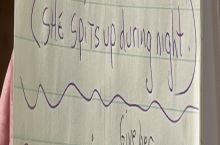 (SHE SPITS up during night.
Give her